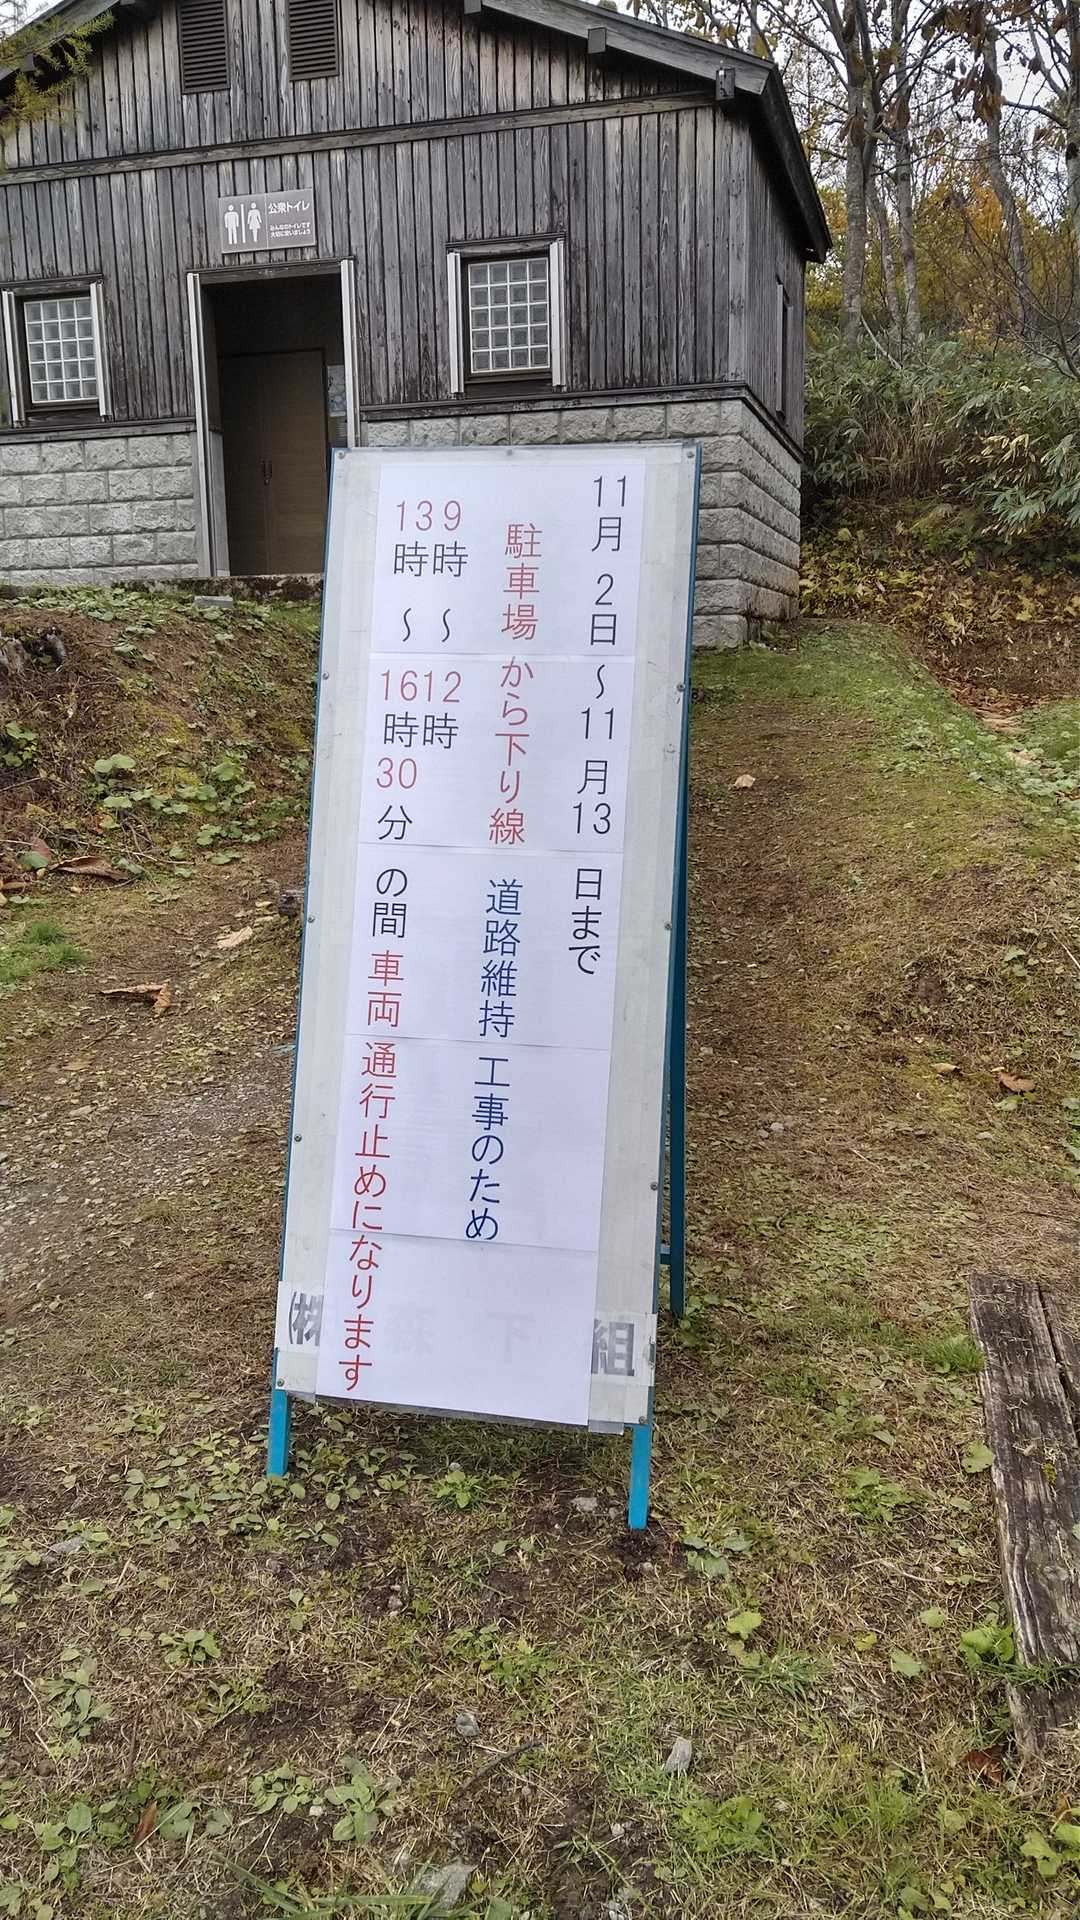 公衆トイレ
みんなのトイレです
大切に使いましょう
11月2日～11月13日まで
駐車場から下り線 道路維持工事のため
9時～12時
13時～16時30分の間 車両通行止めになります
㈱森下組